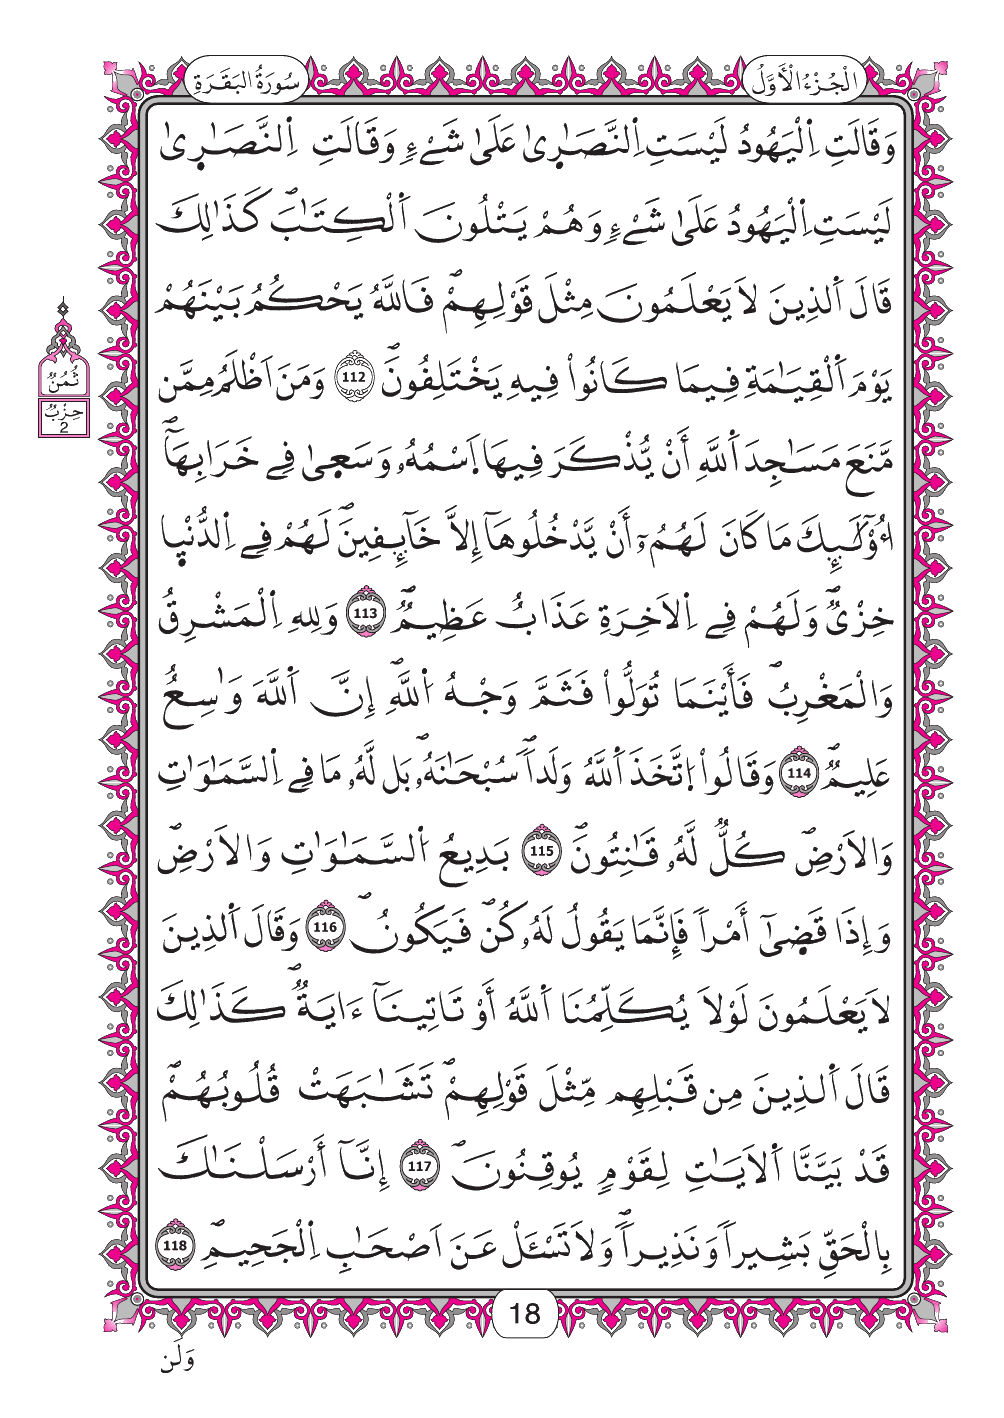 سُورَةُ الْبَقَرَةِ
الْجُزْءُ الْأَوَّلُ
وَقَالَتِ اِلْيَهُودُ لَيْسَتِ اِلنَّصَٰر۪ىٰ عَلَىٰ شَےْءٖ وَقَالَتِ اِلنَّصَٰر۪ىٰ
لَيْسَتِ اِلْيَهُودُ عَلَىٰ شَےْءٖ وَهُمْ يَتْلُونَ اَلْكِتَٰبَۖ كَذَٰلِكَ
قَالَ اَلذِينَ لَا يَعْلَمُونَ مِثْلَ قَوْلِهِمْۖ فَاللَّهُ يَحْكُمُ بَيْنَهُمْ
يَوْمَ اَلْقِيَٰمَةِ فِيمَا كَانُواْ فِيهِ يَخْتَلِفُونَۖ 112 وَمَنَ اَظْلَمُ مِمَّن
مَّنَعَ مَسَٰجِدَ اَللَّهِ أَنْ يُّذْكَرَ فِيهَا اَ۪سْمُهُۥ وَسَع۪ىٰ فِے خَرَابِهَآۖ
أُوْلَٰٓئِكَ مَا كَانَ لَهُمُۥٓ أَنْ يَّدْخُلُوهَآ إِلَّا خَآئِفِينَۖ لَهُمْ فِے اِلدُّنْي۪ا
خِزْيٞۖ وَلَهُمْ فِے اِلَاخِرَةِ عَذَابٌ عَظِيمٞۖ 113 وَلِلهِ اِلْمَشْرِقُ
وَالْمَغْرِبُۖ فَأَيْنَمَا تُوَلُّواْ فَثَمَّ وَجْهُ اُ۬للَّهِۖ إِنَّ اَللَّهَ وَٰسِعٌ
عَلِيمٞۖ 114 وَقَالُواْ اُ۪تَّخَذَ اَللَّهُ وَلَداٗۖ سُبْحَٰنَهُۥۖ بَل لَّهُۥ مَا فِے اِلسَّمَٰوَٰتِ
وَالَارْضِۖ كُلّٞ لَّهُۥ قَٰنِتُونَۖ 115 بَدِيعُ اُ۬لسَّمَٰوَٰتِ وَالَارْضِۖ
وَإِذَا قَض۪ىٰٓ أَمْراٗ فَإِنَّمَا يَقُولُ لَهُۥ كُنۖ فَيَكُونُۖ 116 وَقَالَ اَلذِينَ
لَا يَعْلَمُونَ لَوْلَا يُكَلِّمُنَا اَللَّهُ أَوْ تَاتِينَآ ءَايَةٞۖ كَذَٰلِكَ
قَالَ اَلذِينَ مِن قَبْلِهِم مِّثْلَ قَوْلِهِمْۖ تَشَٰبَهَتْ قُلُوبُهُمْۖ
قَدْ بَيَّنَّا اَلَايَٰتِ لِقَوْمٖ يُوقِنُونَۖ 117 إِنَّآ أَرْسَلْنَٰكَ
بِالْحَقِّ بَشِيراٗ وَنَذِيراٗۖ وَلَا تَسْـَٔلْ عَنَ اَصْحَٰبِ اِلْجَحِيمِۖ 118
ثُمُنُ
حِزْبٌ
2
18
وَلَن